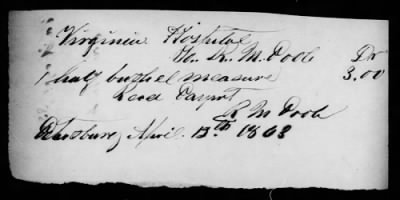 Virginia Hospital
To R. M. Poole Dr
1 half bushel measure 3.00
Recd Paymt
R M Poole
April 15th 1863